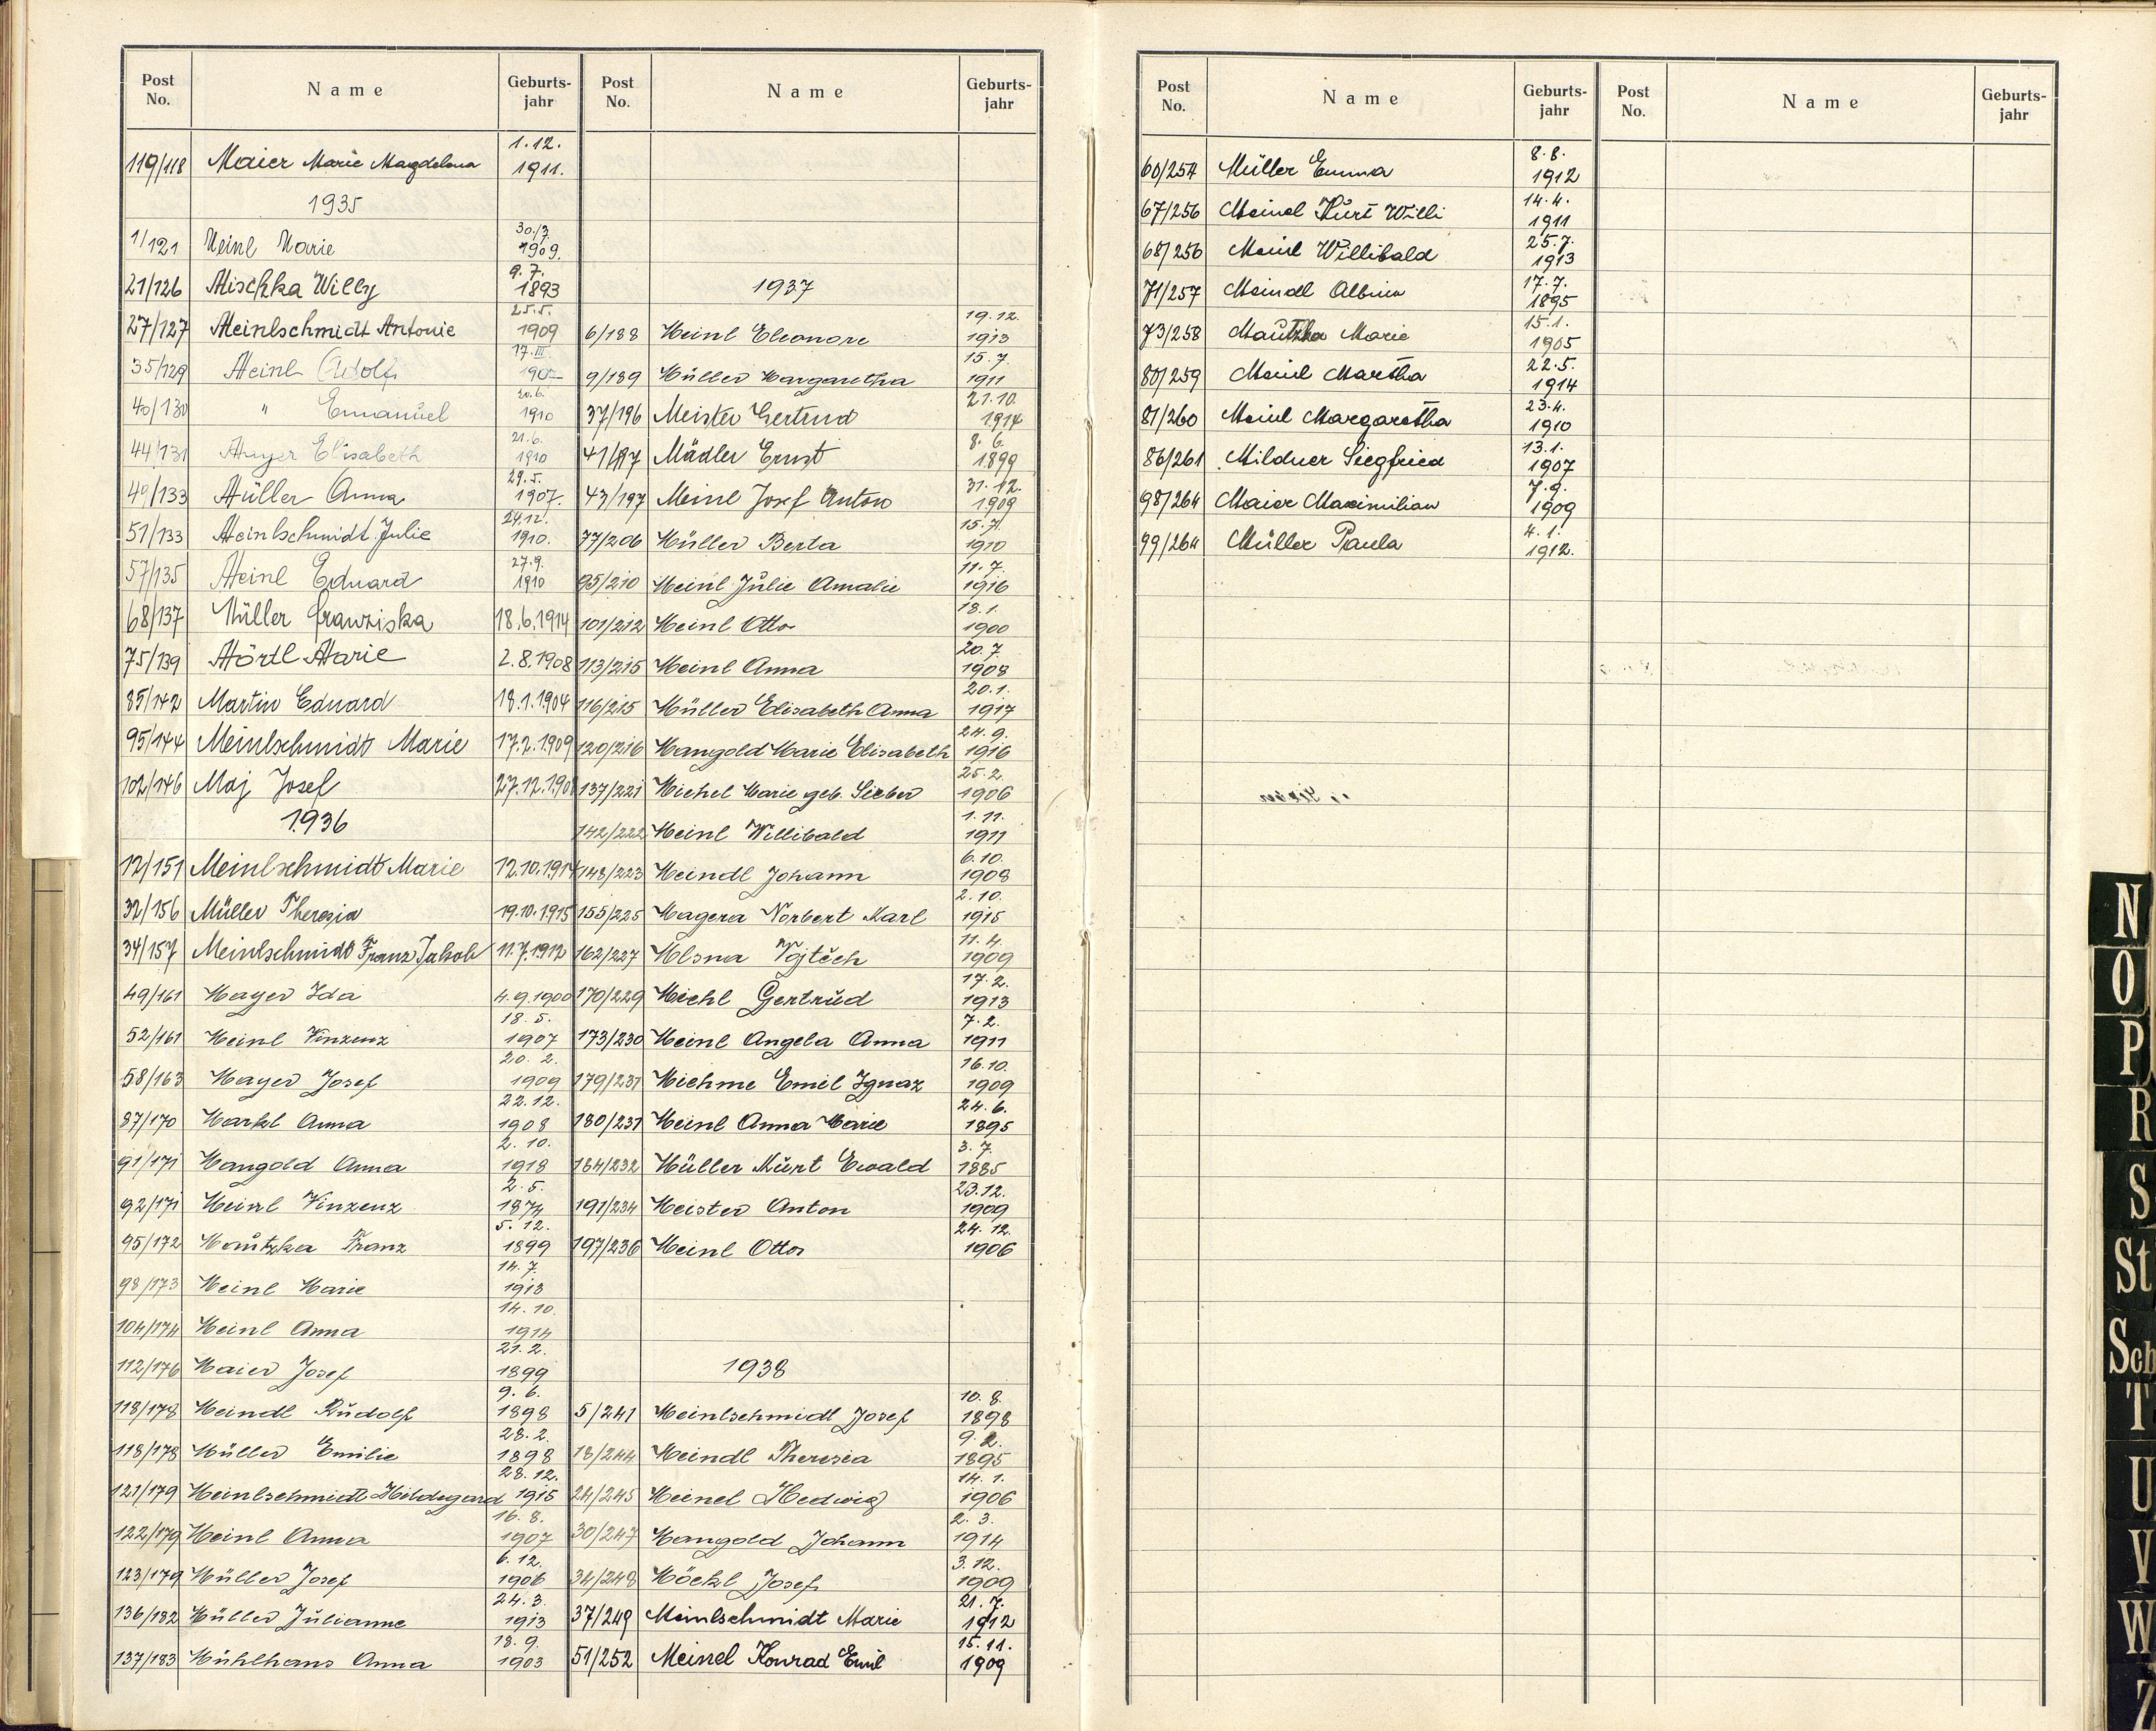 Post No. Name Geburts-jahr
119/118 Maier Marie Magdelena 1.12. 1911.
1935
1/121 Meinl Marie 30./3. 1909.
21/126 Mischka Willy 9.7. 1893
27/127 Meinlschmidt Antonie 25.5. 1909
35/129 Meinl Adolf 17.III.
40/130 " Emanuel 20.6. 1910
44/131 Mayer Elisabeth 21.6. 1910
49/133 Müller Anna 29.5. 1907.
51/133 Meinlschmidt Julie 24.12. 1910.
57/135 Meinl Eduard 27.9. 1910
68/137 Müller Franziska 18.6.1914
75/139 Mördl Marie 2.8.1908
85/142 Martin Eduard 18.1.1904
95/144 Meinlschmidt Marie 17.2.1909
102/146 Maj Josef 27.12.1908
1936
12/151 Meinlschmidt Marie 12.10.1914
32/156 Müller Theresia 19.10.1915
34/157 Meinlschmidt Franz Jakob 11.7.1912
49/161 Mayer Ida 4.9.1900
52/161 Meinl Vinzenz 18.5. 1907
58/163 Mayer Josef 20.2. 1909
87/170 Markl Anna 22.12. 1908
91/171 Mangold Anna 2.10. 1918
92/171 Meinl Vinzenz 2.5. 1874
95/172 Mautzka Franz 5.12. 1899
98/173 Meinl Marie 14.7. 1913
104/174 Meinl Anna 14.10. 1914
112/176 Maier Josef 21.2. 1899
118/178 Meindl Rudolf 9.6. 1898
118/178 Müller Emilie 28.2. 1898
121/179 Meinlschmidt Hildegard 28.12. 1915
122/179 Meinl Anna 16.8. 1907
123/179 Müller Josef 6.12. 1906
136/182 Müller Julianne 24.3. 1913
137/183 Mühlhans Anna 18.9. 1903
Post No. Name Geburts-jahr
1937
6/188 Meinl Eleonore 19.12. 1913
9/189 Müller Margaretha 15.7. 1911
37/196 Meister Gertrud 21.10. 1914
41/197 Mädler Ernst 8.6. 1899
43/197 Meinl Josef Anton 31.12. 1909
77/206 Müller Berta 15.7. 1910
95/210 Meinl Julie Amalie 11.7. 1916
101/212 Meinl Otto 18.1. 1900
113/215 Meinl Anna 20.7. 1908
116/215 Müller Elisabeth Anna 20.1. 1917
120/216 Mangold Marie Elisabeth 24.9. 1916
137/221 Michel Marie geb. Sieber 25.2. 1906
142/222 Meinl Willibald 1.11. 1911
148/223 Meindl Johann 6.10. 1908
155/225 Magera Norbert Karl 2.10. 1915
162/227 Mlsna Vojtěch 11.4. 1909
170/229 Michl Gertrud 17.2. 1913
173/230 Meinl Angela Anna 7.2. 1911
179/231 Miehme Emil Ignaz 16.10. 1909
180/231 Meinl Anna Marie 24.6. 1895
184/232 Müller Kurt Ewald 3.7. 1885
191/234 Meister Anton 23.12. 1909
197/236 Meinl Otto 24.12. 1906
1938
5/241 Meinlschmidl Josef 10.8. 1898
18/244 Meindl Theresia 9.2. 1895
24/245 Meinel Hedwig 14.1. 1906
30/247 Mangold Johann 2.3. 1914
34/248 Möckl Josef 3.12. 1909
37/249 Meinlschmidt Marie 21.7. 1912
51/252 Meinel Konrad Emil 15.11. 1909
Post No. Name Geburts-jahr
60/254 Müller Emma 8.8. 1912
67/256 Meinel Kurt Willi 14.4. 1911
68/256 Meinl Willibald 25.7. 1913
71/257 Meindl Albin 17.7. 1895
73/258 Mautzka Marie 15.1. 1905
80/259 Meinl Martha 22.5. 1914
81/260 Meinl Margaretha 23.4. 1910
86/261 Mildner Siegfried 13.1. 1907
98/264 Maier Maximilian 7.9. 1909
99/264 Müller Paula 4.1. 1912.
Post No. Name Geburts-jahr
N
O
P
R
S
St
Sch
T
U
V
W
Z